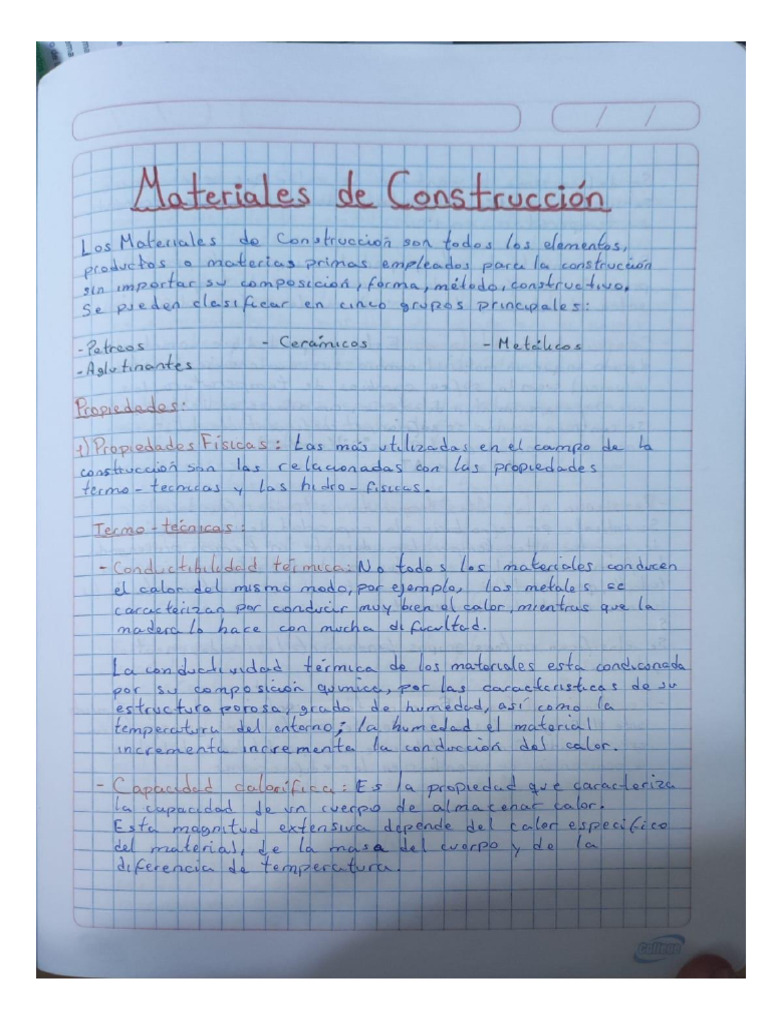 Materiales de Construcción
Los Materiales de Construccion son todos los elementos,
productos o materias primas empleados para la construcción
sin importar su composición, forma, método, constructivo.
Se pueden clasificar en cinco grupos principales:
- Petreos - Cerámicos - Metálicos
- Aglutinantes
Propiedades:
1) Propiedades Físicas: Las más utilizadas en el campo de la
construcción son las relacionadas con las propiedades
termo-tecnicas y las hidro-fisicas.
Termo-técnicas:
- Conductibilidad térmica: No todos los materiales conducen
el calor del mismo modo, por ejemplo, los metales se
caracterizan por conducir muy bien el calor, mientras que la
madera lo hace con mucha dificultad.
La conductividad térmica de los materiales esta condiconada
por su composición química, por las caracteristicas de su
estructura porosa, grado de humedad, así como la
temperatura del entorno; la humedad el material
incrementa incrementa la conducción del calor.
- Capacidad calorífica: Es la propiedad que caracteriza
la capacidad de un cuerpo de almacenar calor.
Esta magnitud extensiva depende del calor especifico
del material, de la masa del cuerpo y de la
diferencia de temperatura.
College